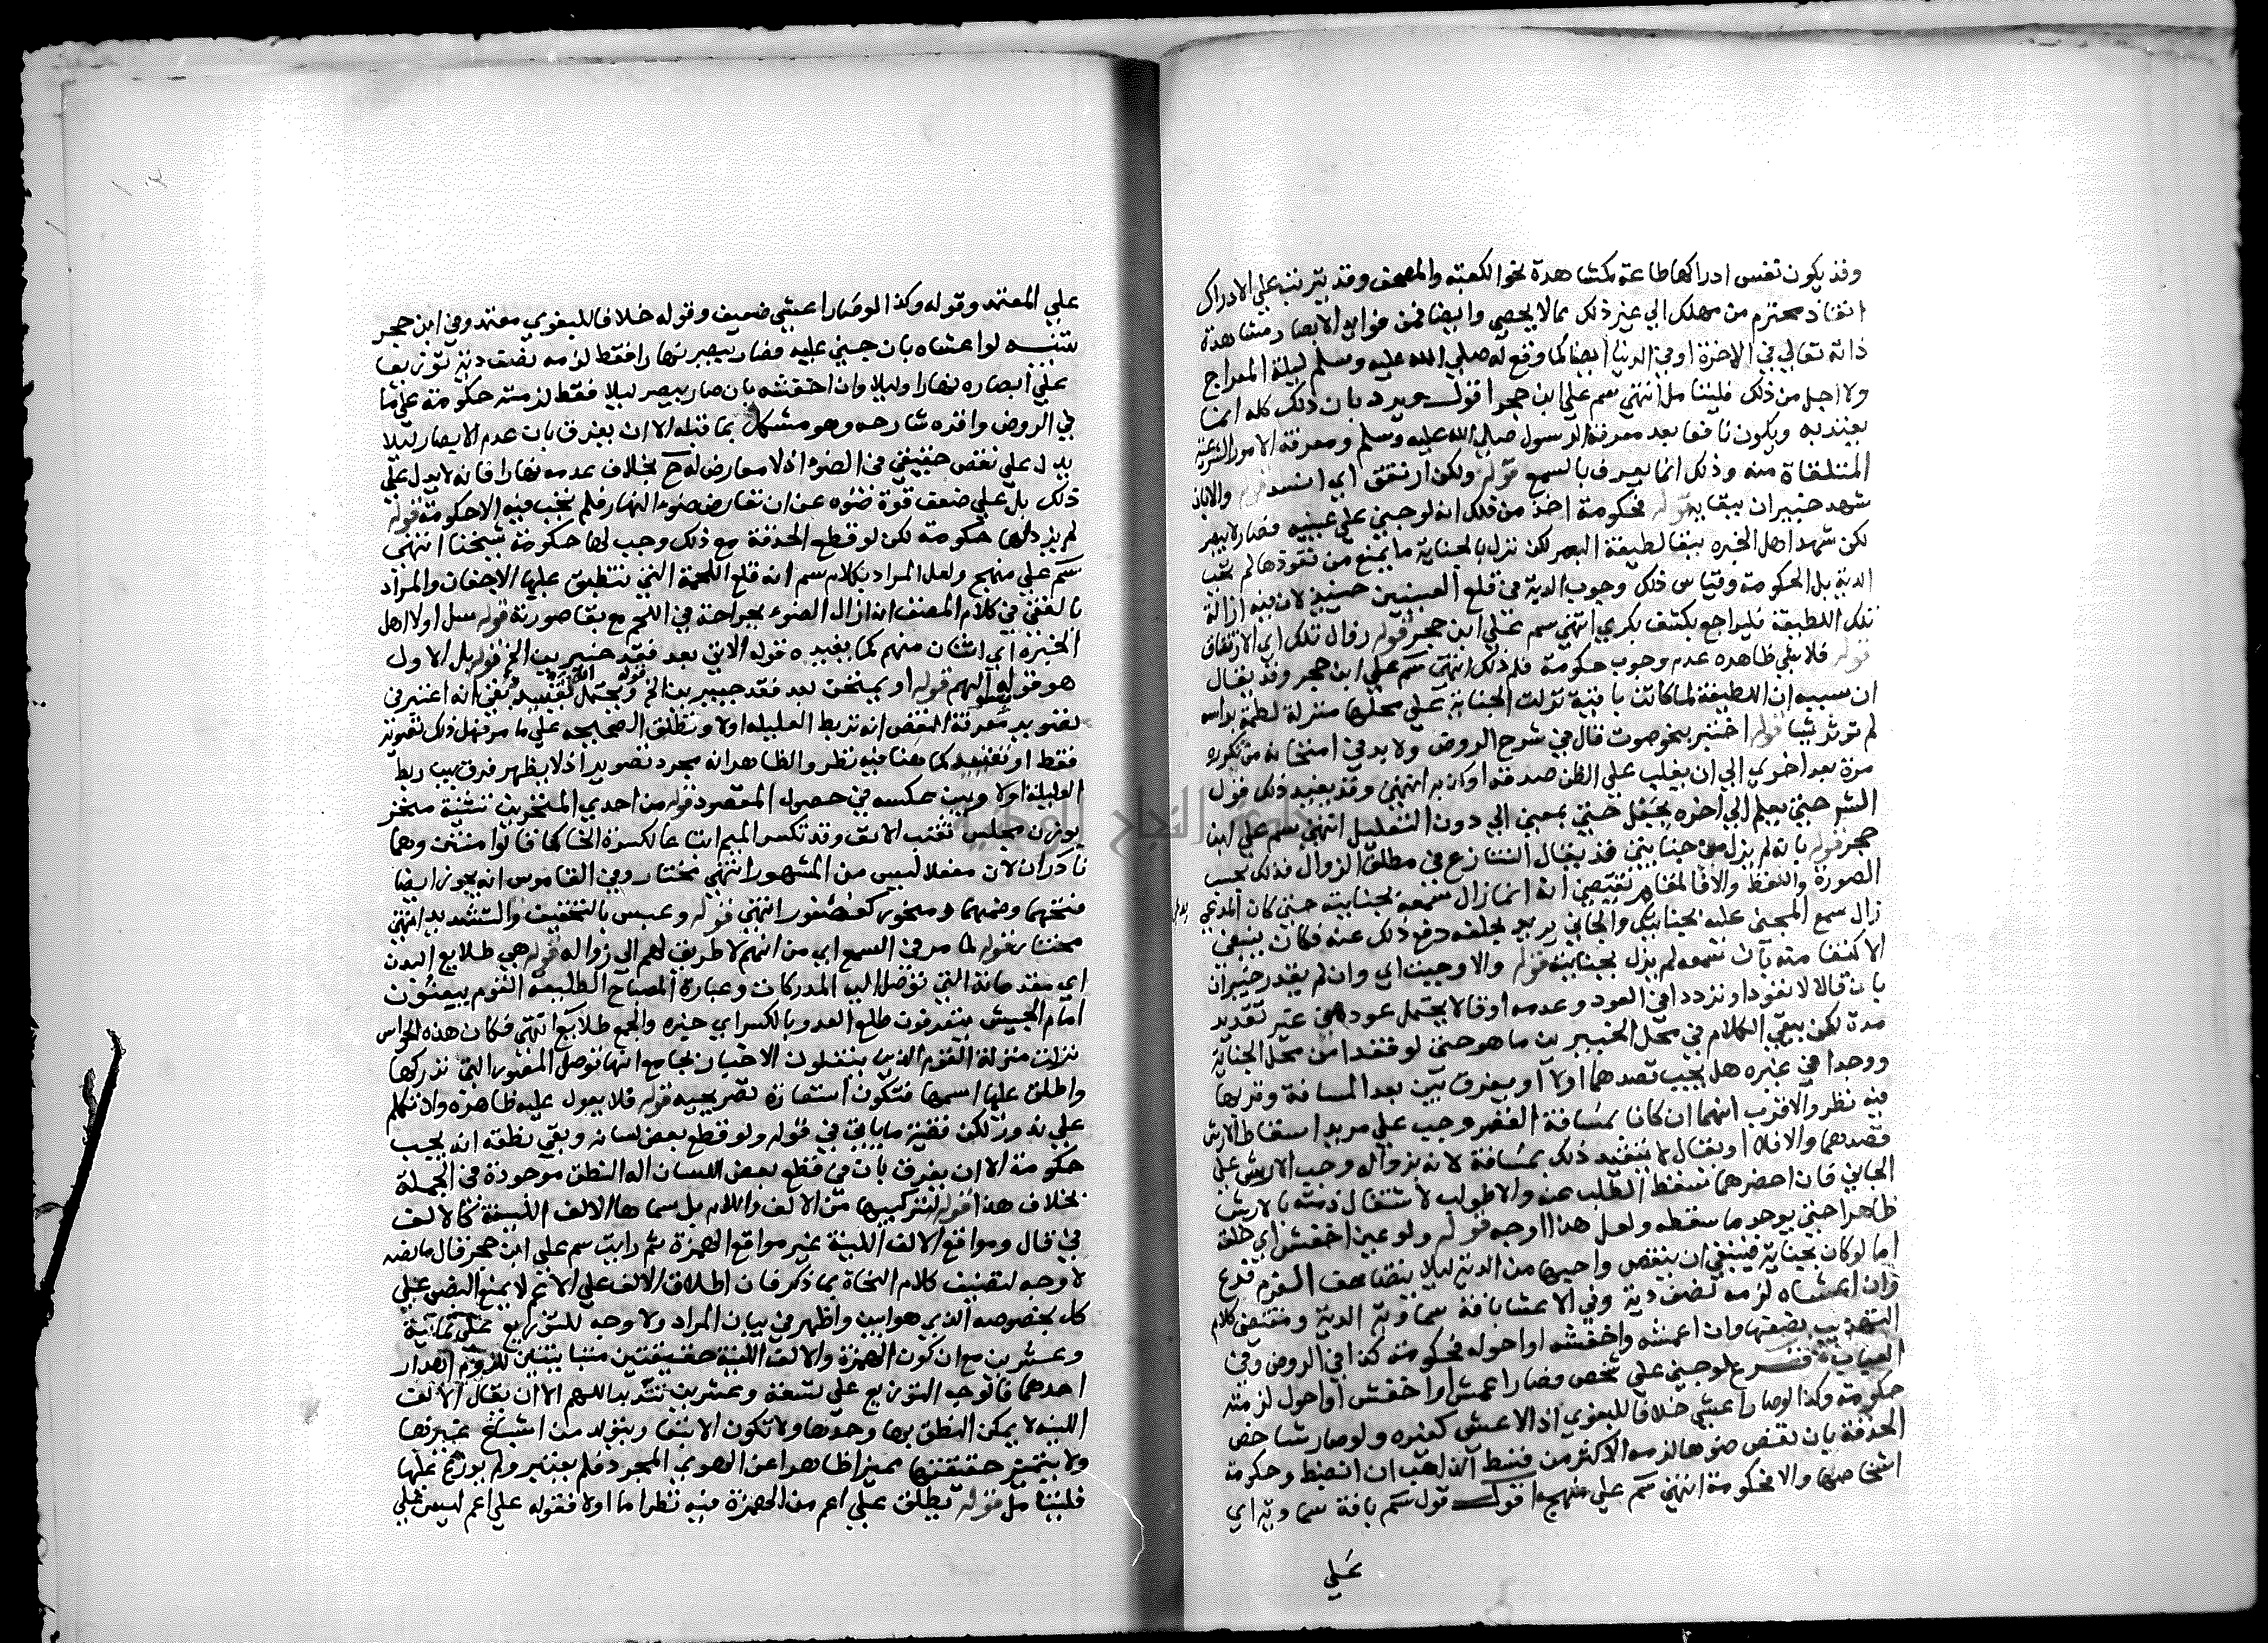 وقد يكون نفس ادراكها طاعة كمشاهدة نحو الكعبة والمصحف وقد يترتب علي الادراك
انقاذ محترم من مهلك الي غير ذلك مما لا يحصي وايضا فمن فوايد الابصار مشاهدة
ذاته تعالي في الاخرة او في الدنيا ايضا كما وقع له صلي الله عليه وسلم ليلة المعراج
ولا اجل من ذلك فليتامل انتهي سم علي ابن حجر اقول ويرد بان ذلك كله انما
يعتد به ويكون نافعا بعد معرفة الرسول صلي الله عليه وسلم ومعرفة الامور الشرعية
المتلقاة منه وذلك انما يعرف بالسمع قوله ولكن ارتتق اي انسد قوله والا بان
شهد خبيران ببقايه قوله فحكومة اخذ من ذلك انه لو جني علي عينيه فصار لا يبصر
لكن شهد اهل الخبره ببقا لطيفة البصر لكن نزل بالجناية ما يمنع من نفوذها لم تجب
الدية بل الحكومة وقياس ذلك وجوب الدية في قلع العينين حينيذ لان فيه ازالة
تلك اللطيفة فليراجع بكشف بكري انتهي سم علي ابن حجر قوله زوال تلك اي الارتتاق
قوله فلا بقي ظاهره عدم وجوب حكومة فلم ذلك انتهي سم علي ابن حجر وقد يقال
ان سببه ان اللطيفة لما كانت باقية نزلت الجناية علي محلها منزلة لطمة براسه
لم توثر شيا قوله اختبر بنحو صوت قال في شرح الروض ولا بد في امتحانه من تكرره
مرة بعد اخري الي ان يغلب علي الظن صدقه او كذبه انتهي وقد يفيد ذلك قول
الشـ حتي يعلم الي اخره بجعل حتي بمعني الي دون التعليل انتهي سم علي ابن
حجر قوله بانه لم يزل من جنايتي قد يقال التنازع في مطلق الزوال فذلك بحسب
الصورة واللفظ والا فالمقام يقتضي انه انما زال سمعه بجنايته حتي كان المدعي يدعي
زال سمع المجني عليه بجنايتك والجاني يريد بحلفه دفع ذلك عنه فكان ينبغي
الاكتفا منه بان سمعه لم يزل بجنايته قوله والا وجبت اي وان لم يقدر خبيران
بان قالا لا نعود او ترددا في العود وعدمه او قالا يحتمل عوده في غير تقدير
مدة لكن يبقي الكلام في محل الخبيرين ما هو حتي لو فقدا من محل الجناية
ووجدا في غيره هل يجب قصدهما او لا او يفرق بين بعد المسافة وقربها
فيه نظر والاقرب انهما ان كانا بمسافة القصر وجب علي مريد اسقاط الارش
قصدهما والا فلا او يقال لا يتقيد ذلك بمسافة لانه بزواله وجب الارش علي
الجاني فان احضرهما سقط الطلب عنه والا طولب لاشتغال ذمته بالارش
ظاهرا حتي يوجد ما يسقطه ولعل هذا اوجه قوله ولو عين اخفش اي خلقة
اما لو كان بجناية فينبغي ان ينقص واجبها من الدية ليلا يتضاعف الغرم فرع
وان اعشاه لزمه نصف دية وفي الاعشا بافة سماوية الدية ومقتضي كلام
التهذيب نصفها وان اعمشه او اخفشه او احوله فحكومة كذا في الروض وفي
العباب فـــرع لو جني علي شخص فصار اعمش او اخفش او احول لزمته
حكومة وكذا لو صار اعشي خلافا للبغوي اذ الاعشي كغيره ولو صار شاخص
الحدقة بان نقص ضوها لزمه الاكثر من قسط الذاهب ان انضبط وحكومة
اشخاصها والا فحكومة انتهي سم علي منهج اقول قول سم بافة سماوية اي
علي
علي المعتمد وقوله وكذا لو صار اعشي ضعيف وقوله خلافا للبغوي معتمد وفي ابن حجر
تنبيه لو اعشاه بان جني عليه فصار يبصر نهارا فقط لزمه نصف دية توزيعا
علي ابصاره نهارا وليلا وان اخفشه بان صار يبصر ليلا فقط لزمته حكومة علي ما
في الروض واقره شارحه وهو مشكل بما قبله الا ان يفرق بان عدم الابصار ليلا
يدل علي نقص حقيقي في الضوء اذ لا معارض له ح بخلاف عدمه نهارا فانه لا يدل علي
ذلك بل علي ضعف قوة ضوءه عن ان تعارض ضوء النهار فلم تجب فيه الا حكومة قوله
لم يزد لها حكومة لكن لو قطع الحدقة مع ذلك وجب لها حكومة شيخنا انتهي
سم علي منهج ولعل المراد بكلام سم انه قلع اللحمة التي تنطبق عليها الاجفان والمراد
بالفقئ في كلام المصنف انه ازال الضوء بجراحة في اللحم مع بقا صورته قوله سيل اولا اهل
الخبرة اي اثنان منهم كما يفيده قوله الاتي بعد فقد خبيرين الخ قوله بل الاول
هو قوله اليهم قوله او يمتحن بعد فقد خبيرين الخ ويحتمل تقييد وبقي انه اعتبر في
تصوير معرفة النقص انه تربط العليله اولا وتطلق الصحيحه علي ما مر فهل ذلك تصوير
فقط او تقييد كما هنا فيه نظر والظاهر انه مجرد تصوير اذ لا يظهر فرق بين ربط
العليلة اولا وبين عكسه في حصول المقصود قوله من احدي المنخرين تثنية منخر
بوزن مجلس ثقب الانف وقد تكسر الميم اتباعا لكسرة الخا كما قالوا منتن وهما
نادران لان مفعلا ليس من المشهور انتهي مختار وفي القاموس انه يجوز ايضا
فتحهما وضمهما ومنخور كعصفور انتهي قوله وعبس بالتخفيف والتشديد انتهي
مختار قوله لما مر في السمع اي من انهم لا طريق لهم الي زواله قوله هي طلايع البدن
اي مقدماته التي توصل اليه المدركات وعبارة المصباح الطليعه القوم يبعثون
امام الجيش يتعرفون طلع العدو بالكسر اي خبره والجمع طلايع انتهي فكان هذه الحواس
نزلت منزلة القوم الذين ينقلون الاخبار بجامع انها توصل المتصور التي تدركها
واطلق عليها اسمها فتكون استعارة تصريحيه قوله فلا يعول عليه ظاهره وان تكلم
علي ندور لكن قضية ما ياتي في قوله ولو قطع بعض لسانه وبقي نطقه انه يجب
حكومة الا ان يفرق بان في قطع بعض اللسان اله النطق موجودة في الجملة
بخلاف هذا قوله لتركيبها من الالف واللام بل سماها الالف اللينة كالالف
في قال ومواقع الالف اللينة غير مواقع الهمزة ثم رايت سم علي ابن حجر قال ما نصه
لا وجه لتضعيف كلام النحاة بما ذكر فان اطلاق الالف علي الاعم لا يمنع النص علي
كل بخصوصه الذي هو ابين واظهر في بيان المراد ولا وجه للتوزيع علي ثمانية
وعشرين مع ان كون الهمزة والالف اللينة حقيقتين متباينتين للزوم اهدار
احدهما فالوجه التوزيع علي تسعة وعشرين بتقديم اللهم الا ان يقال الالف
اللينه لا يمكن النطق بها وحدها ولا تكون الا تبعا ويتولد من اشباع غيرها
ولا يتميز حقيقتها تميزا ظاهرا عن الصوت المجرد فلم يعتبر ولم يوزع عليها
فليتامل قوله يطلق علي اعم من الهمزة فيه نظر اما اولا فقوله علي اعم ليس علي